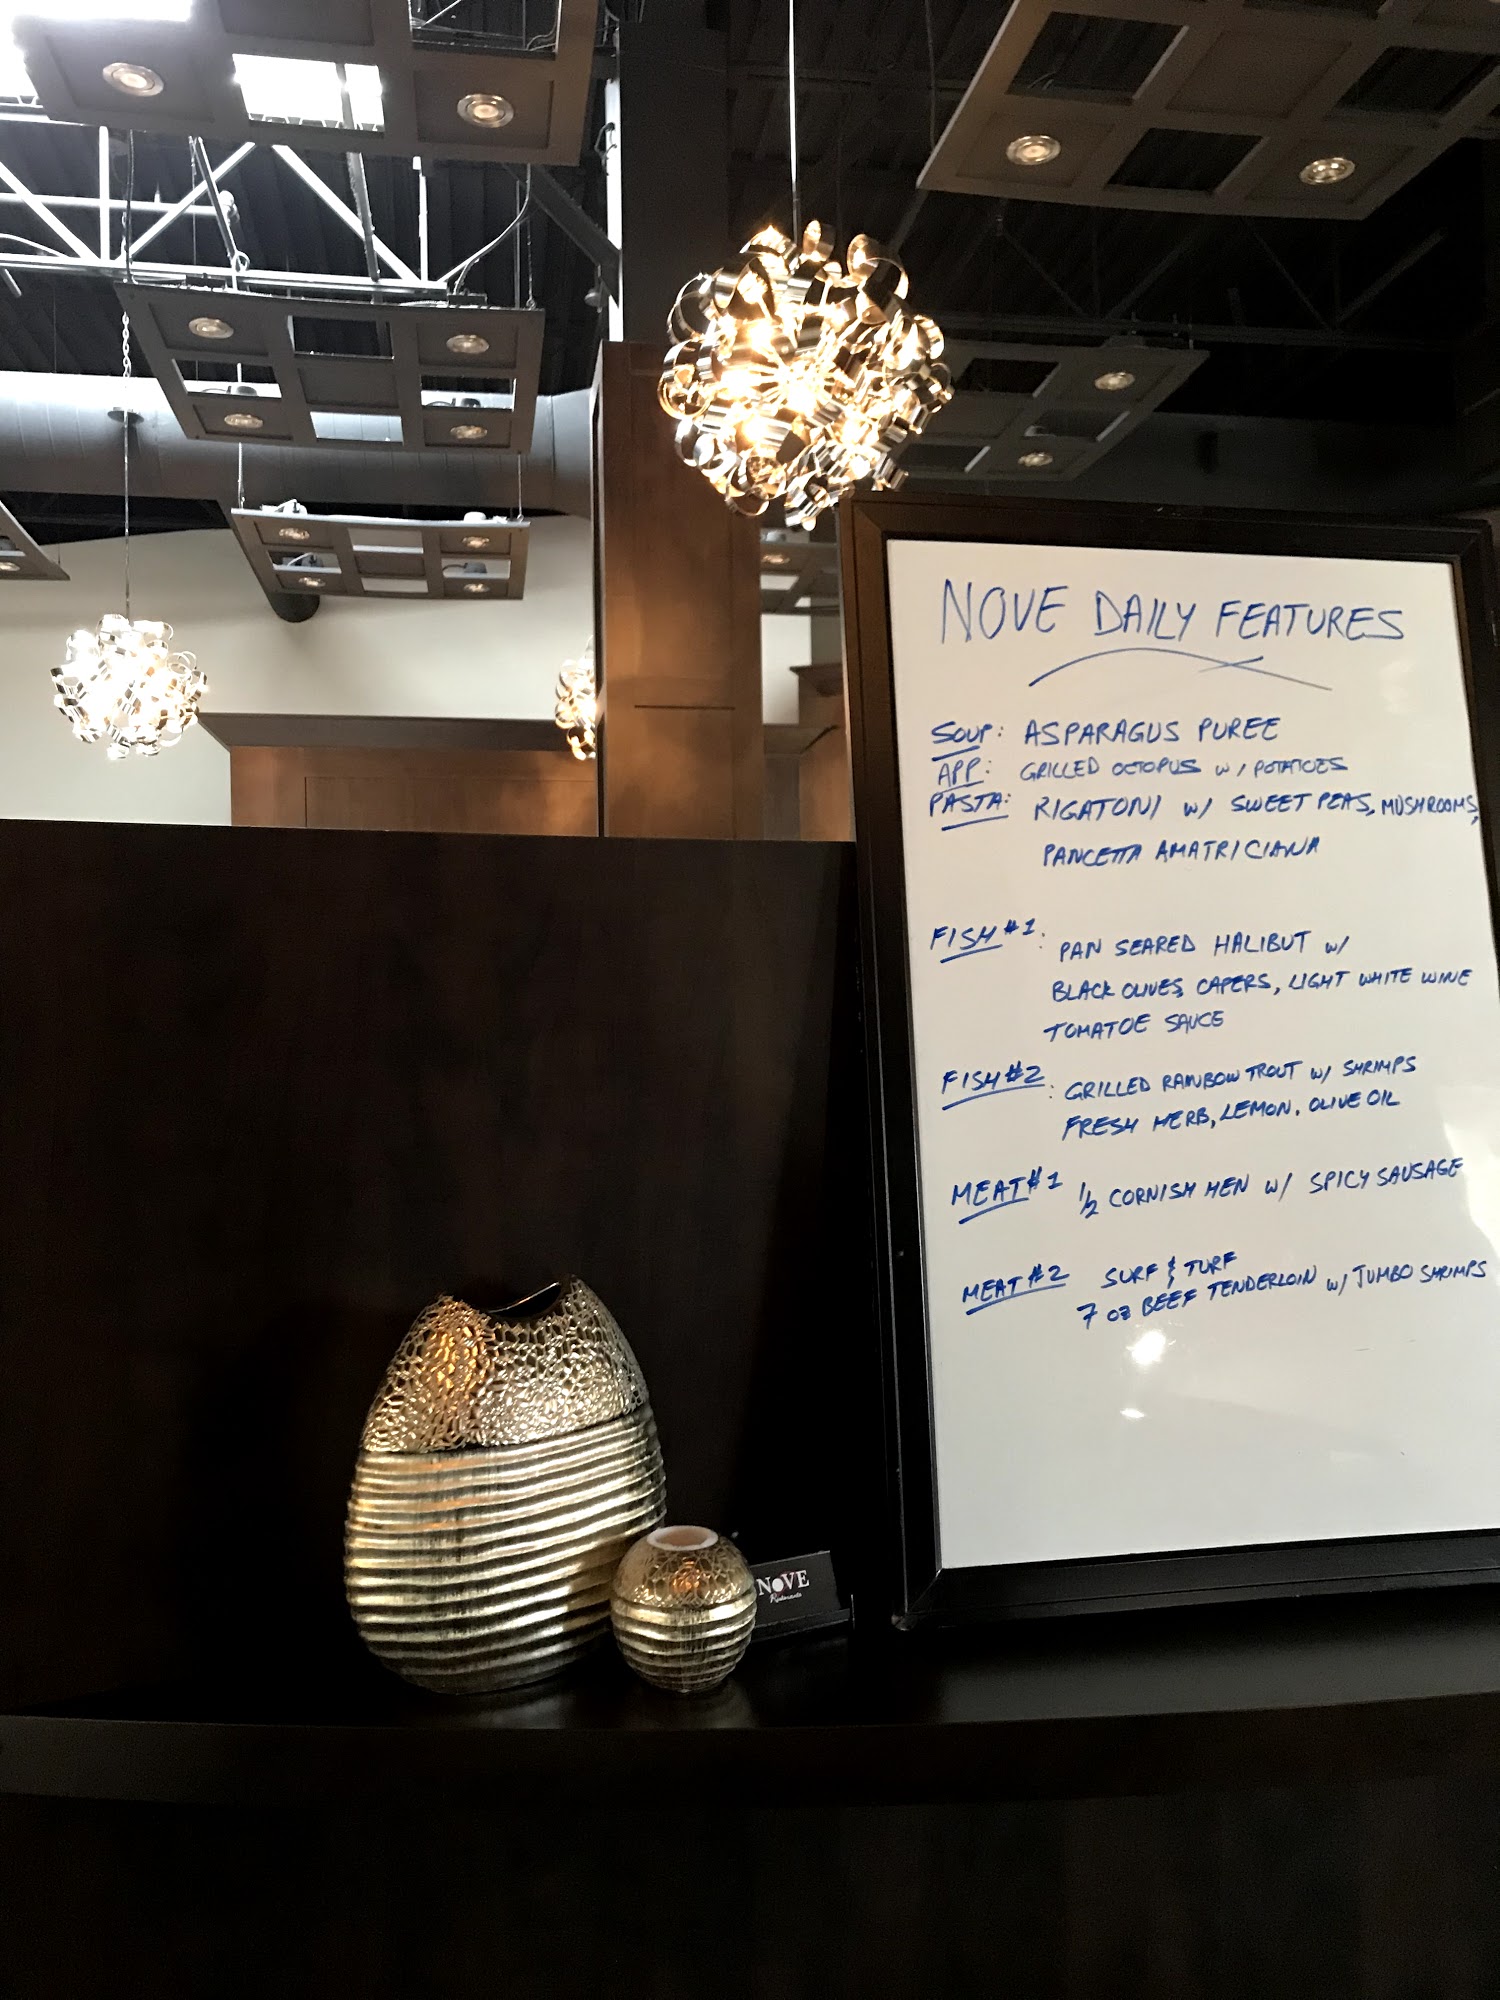 NOVE DAILY FEATURES
SOUP: ASPARAGUS PUREE
APP: GRILLED OCTOPUS W/ POTATOES
PASTA: RIGATONI W/ SWEET PEAS, MUSHROOMS,
PANCETTA AMATRICIANA
FISH #1: PAN SEARED HALIBUT W/
BLACK OLIVES, CAPERS, LIGHT WHITE WINE
TOMATOE SAUCE
FISH #2: GRILLED RAINBOW TROUT W/ SHRIMPS
FRESH HERB, LEMON, OLIVE OIL
MEAT #1 1/2 CORNISH HEN W/ SPICY SAUSAGE
MEAT #2 SURF & TURF
7 OZ BEEF TENDERLOIN W/ JUMBO SHRIMPS
NOVE
Ristorante